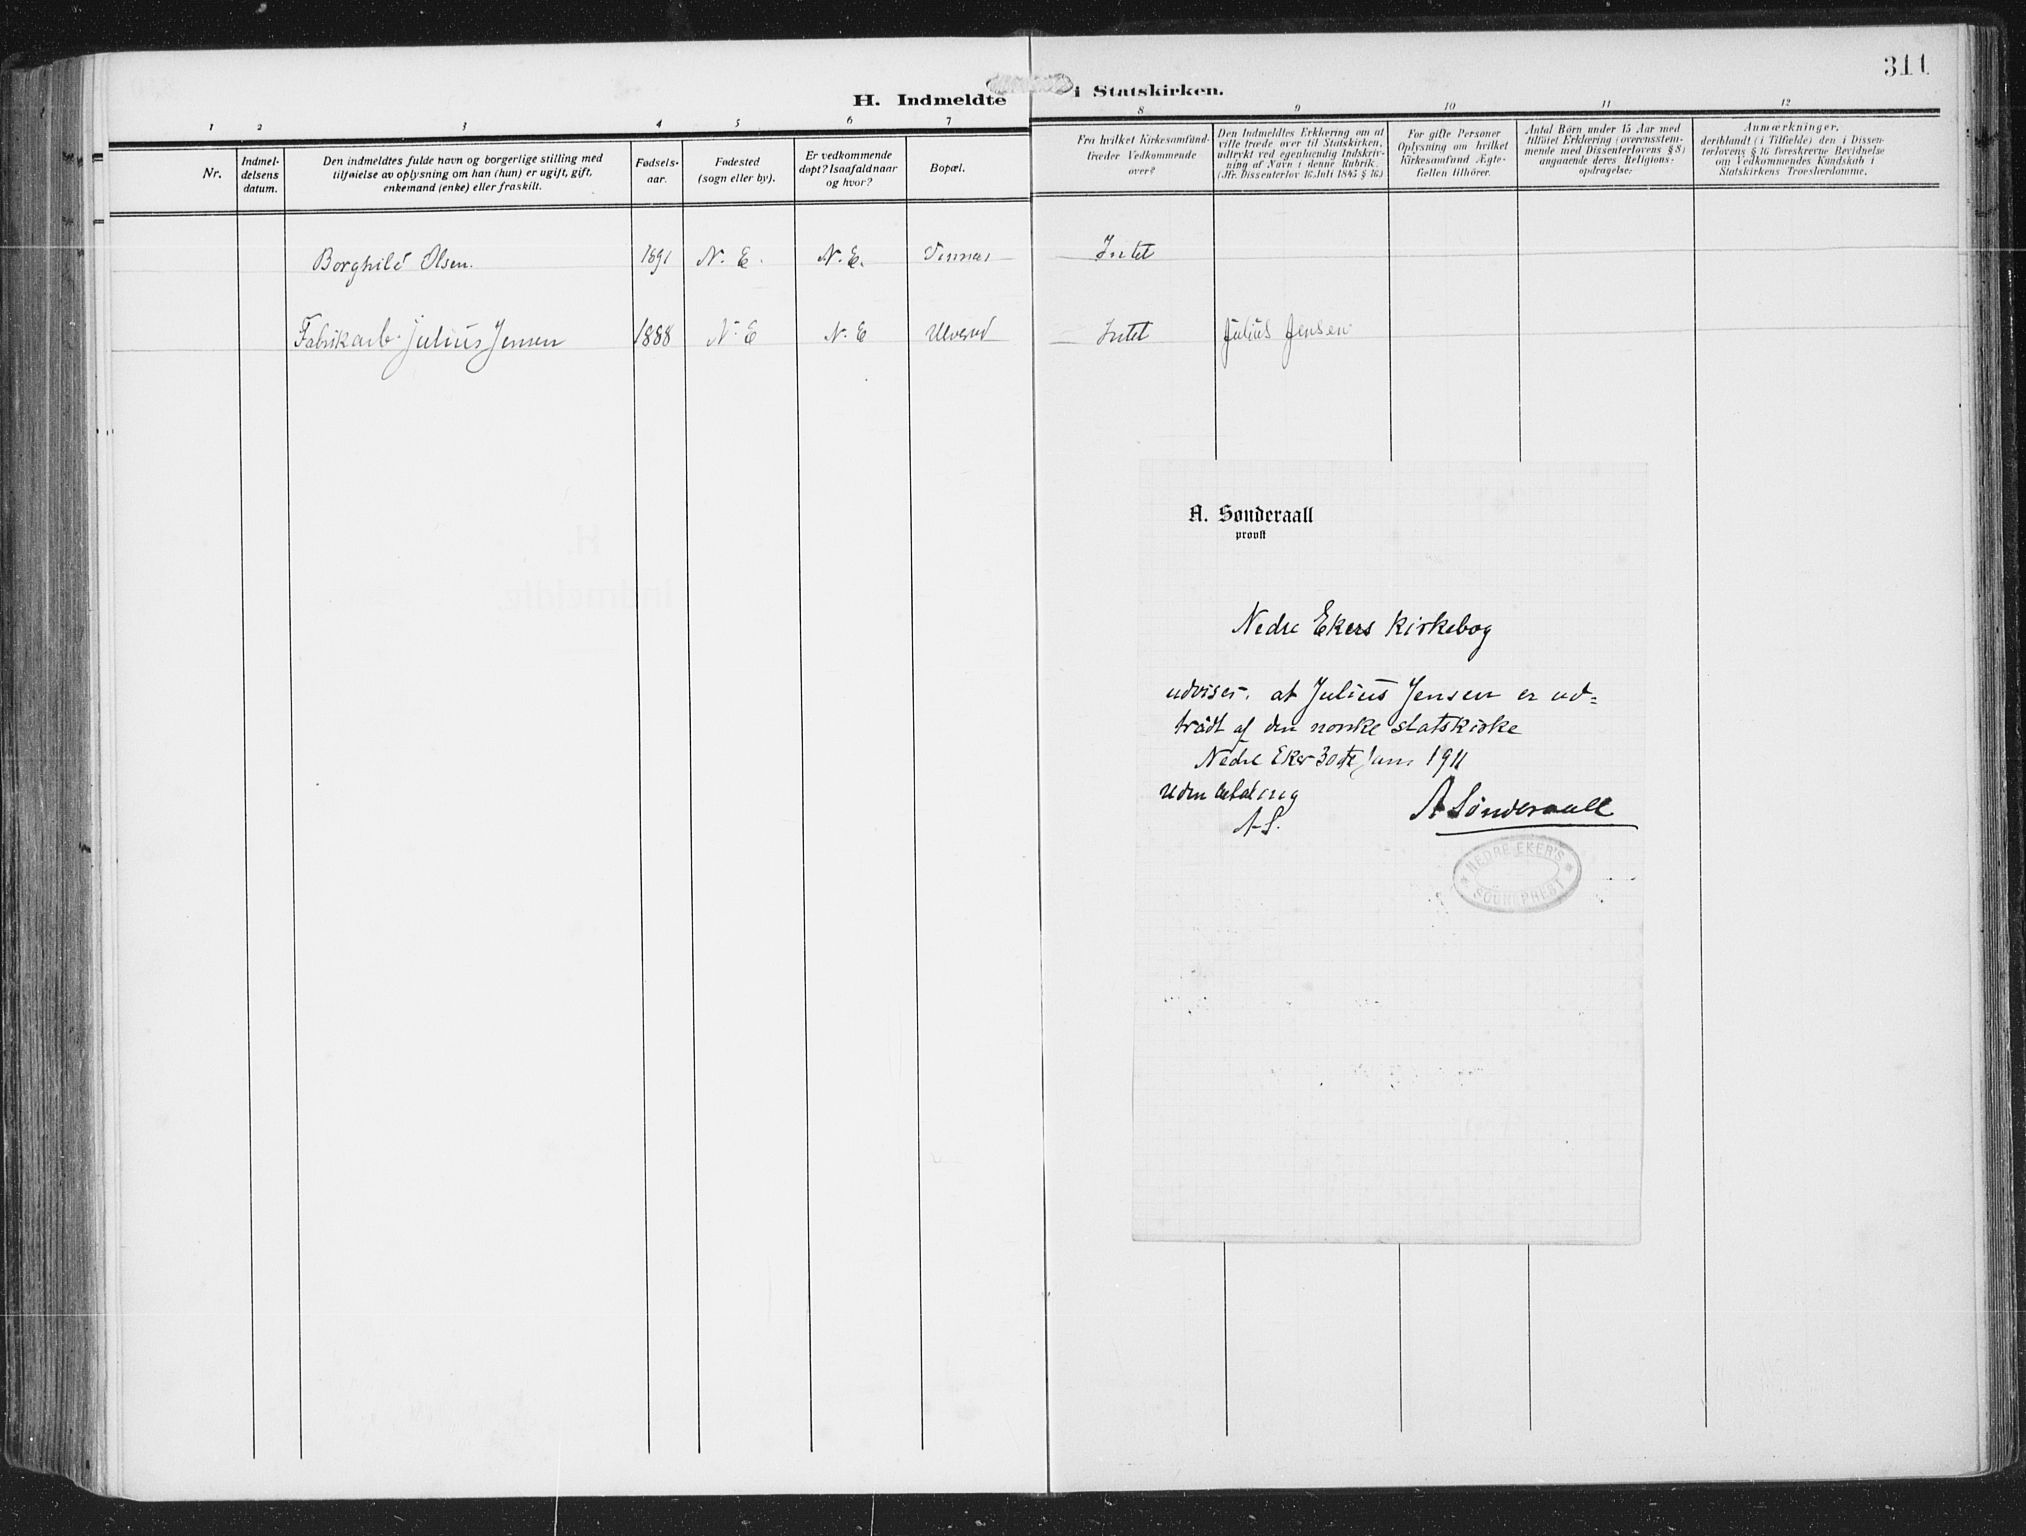 311
H. Indmeldte i Statskirken.
1 2 3 4 5 6 7 8 9 10 11 12
Nr.
Indmel-
delsens
datum.
Den indmeldtes fulde navn og borgerlige stilling med
tilføielse av oplysning om han (hun) er ugift, gift,
enkemand (enke) eller fraskilt.
Fødsels-
aar.
Fødested
(sogn eller by).
Er vedkommende
døpt? Isaafald naar
og hvor?
Bopæl.
Fra hvilket Kirkesamfund
træder Vedkommende
over?
Den Indmeldtes Erklæring om at
ville træde over til Statskirken,
udtrykt ved egenhændig Indskriv-
ning af Navn i denne Rubrik.
(Jfr. Dissenterlov 16 Juli 1845 § 16.)
For gifte Personer
Oplysning om hvilket
Kirkesamfund Ægte-
fællen tilhører.
Antal Børn under 15 Aar med
tilføiet Erklæring (overensstem-
mende med Dissenterlovens § 8)
angaaende deres Religions-
opdragelse.
Anmærkninger,
deriblandt (i Tilfælde) den i Dissen-
terlovens § 16 foreskrevne Bevidnelse
om Vedkommendes Kundskab i
Statskirkens Troeslærdomme.
Borghild Olsen. 1891 N. E. N. E. Intet
Fabrikarb. Julius Jensen 1888 N. E N. E Ulverud Intet Julius Jensen
A. Sønderaall
provst
Nedre Ekers kirkebog
udviser, at Julius Jensen er ud=
trådt af den norske statskirke
Nedre Eker 30te Juni 1911
Uden betaling
A. S.
A Sønderaall
NEDRE EKER'S
SOGNEPREST